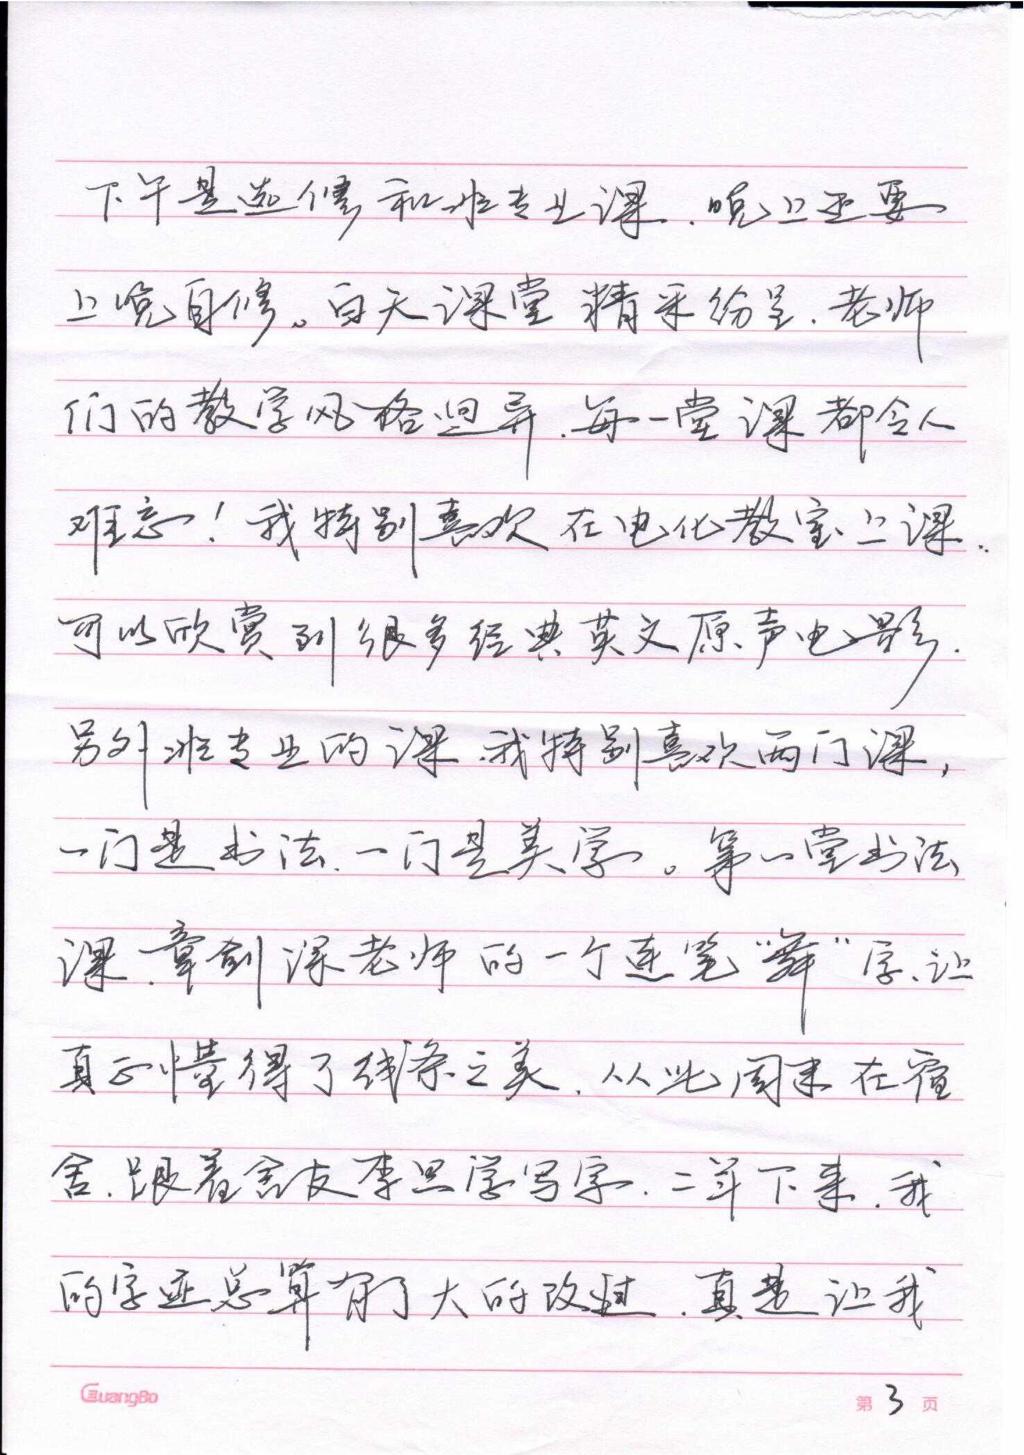 下午是选修和非专业课.晚上还要
上晚自修。白天课堂精采纷呈.老师
们的教学风格迥异.每一堂课都令人
难忘！我特别喜欢在电化教室上课.
可以欣赏到很多经典英文原声电影.
另外非专业的课.我特别喜欢两门课，
一门是书法.一门是美学。第一堂书法
课.章剑深老师的一个连笔“舞”字.让
真正懂得了线条之美.从此周末在宿
舍.跟着舍友李思学写字.二年下来.我
的字迹总算有了大的改进.真是让我
GuangBo
第3页